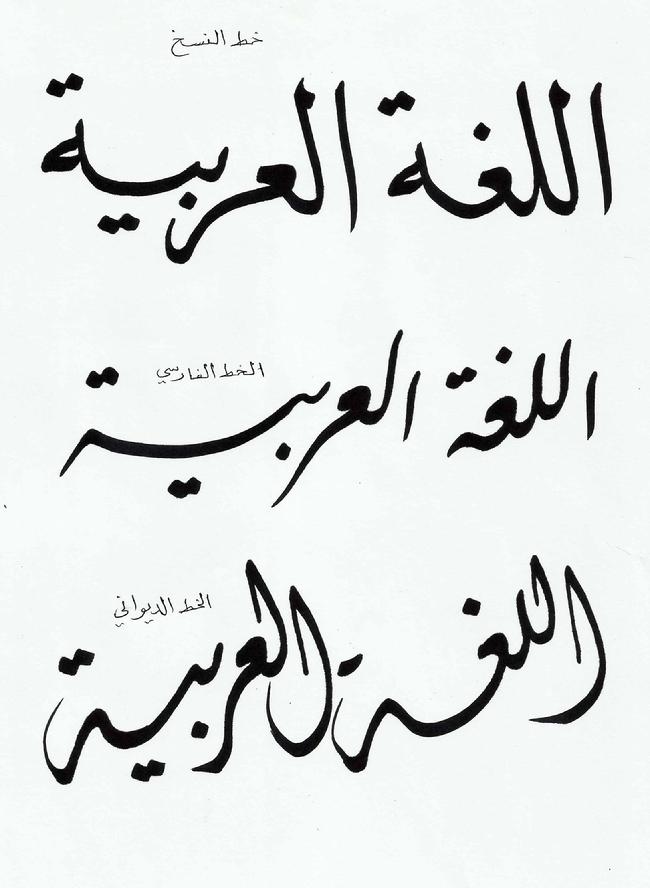 خط النسخ
اللغة العربية
الخط الفارسي
اللغة العربية
الخط الديواني
اللغة العربية